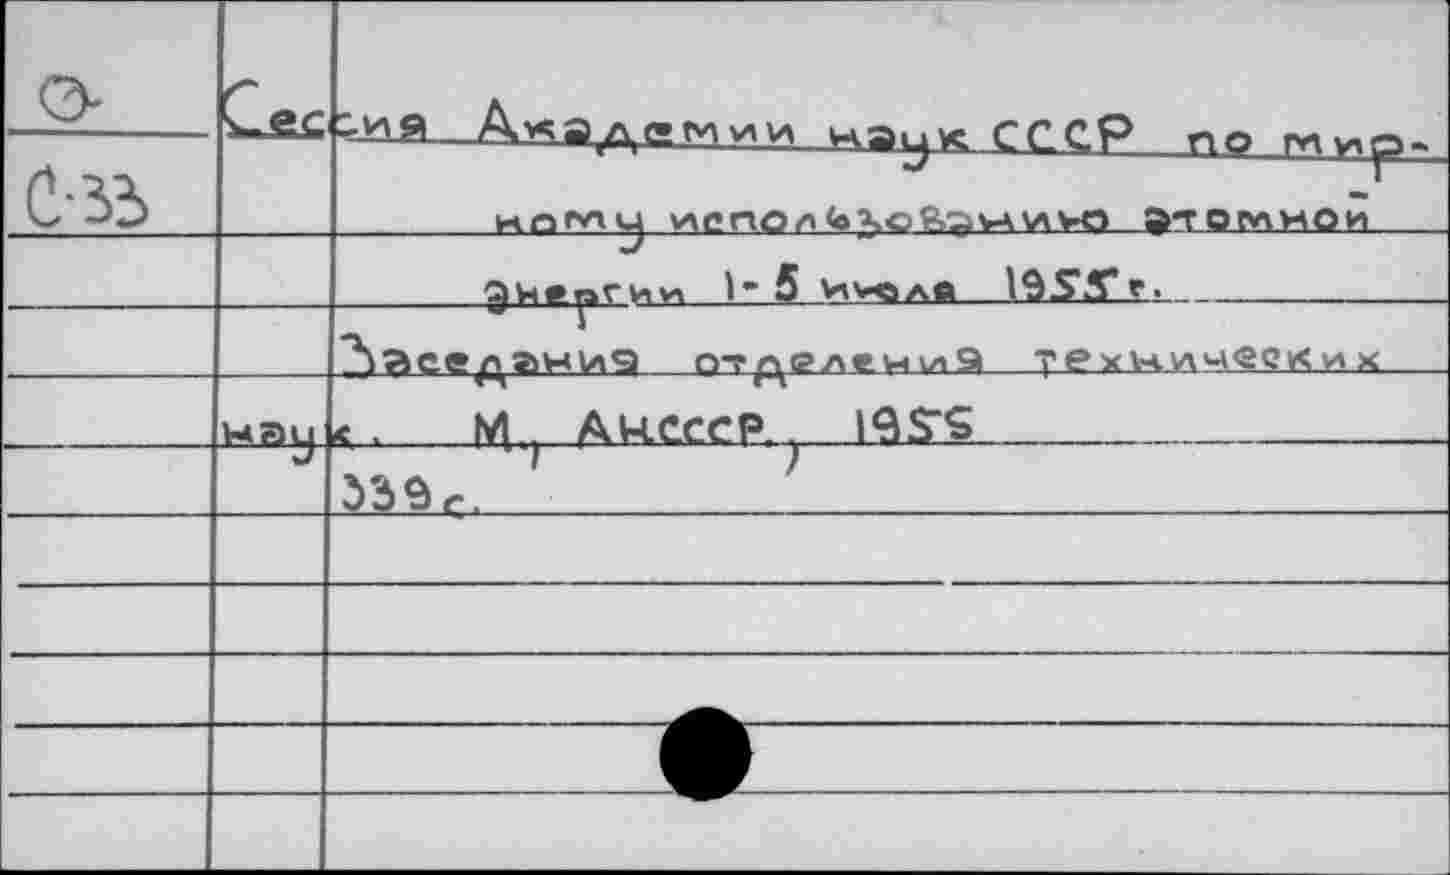 Сессия Академии наук СССР по мир-
С-33
ному использованию атомной
энергии 1-5 июля 1955г.
Заседания отделения технических
наук. М., АНСССР, 1955
339с.